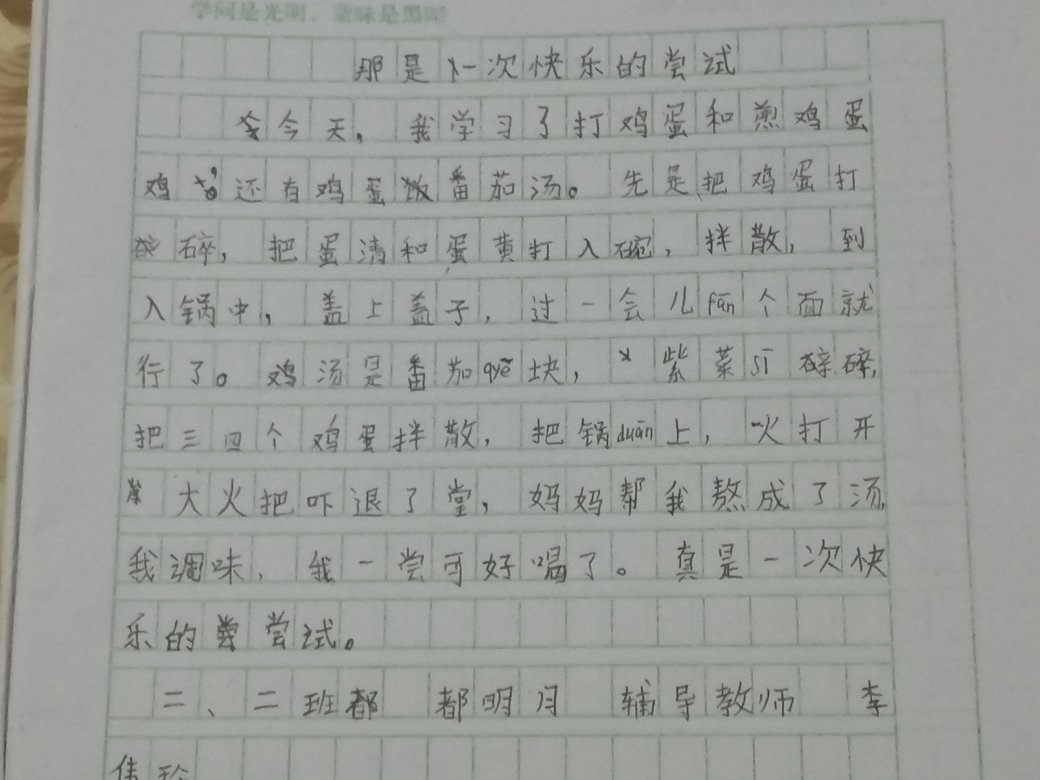 学问是光明，蒙昧是黑暗
那是一次快乐的尝试
今天，我学习了打鸡蛋和煎鸡蛋
鸡 还有鸡蛋饭番茄汤。先是把鸡蛋打
碎，把蛋清和蛋黄打入碗，拌散，到
入锅中，盖上盖子，过一会儿fān个面就
行了。鸡汤是番茄qiē块，紫菜sī碎碎，
把三四个鸡蛋拌散，把锅duān上，火打开
大火把吓退了堂，妈妈帮我熬成了汤，
我调味，我一尝可好喝了。真是一次快
乐的尝试。
二、二班都 都明月 辅导教师 李
伟玲